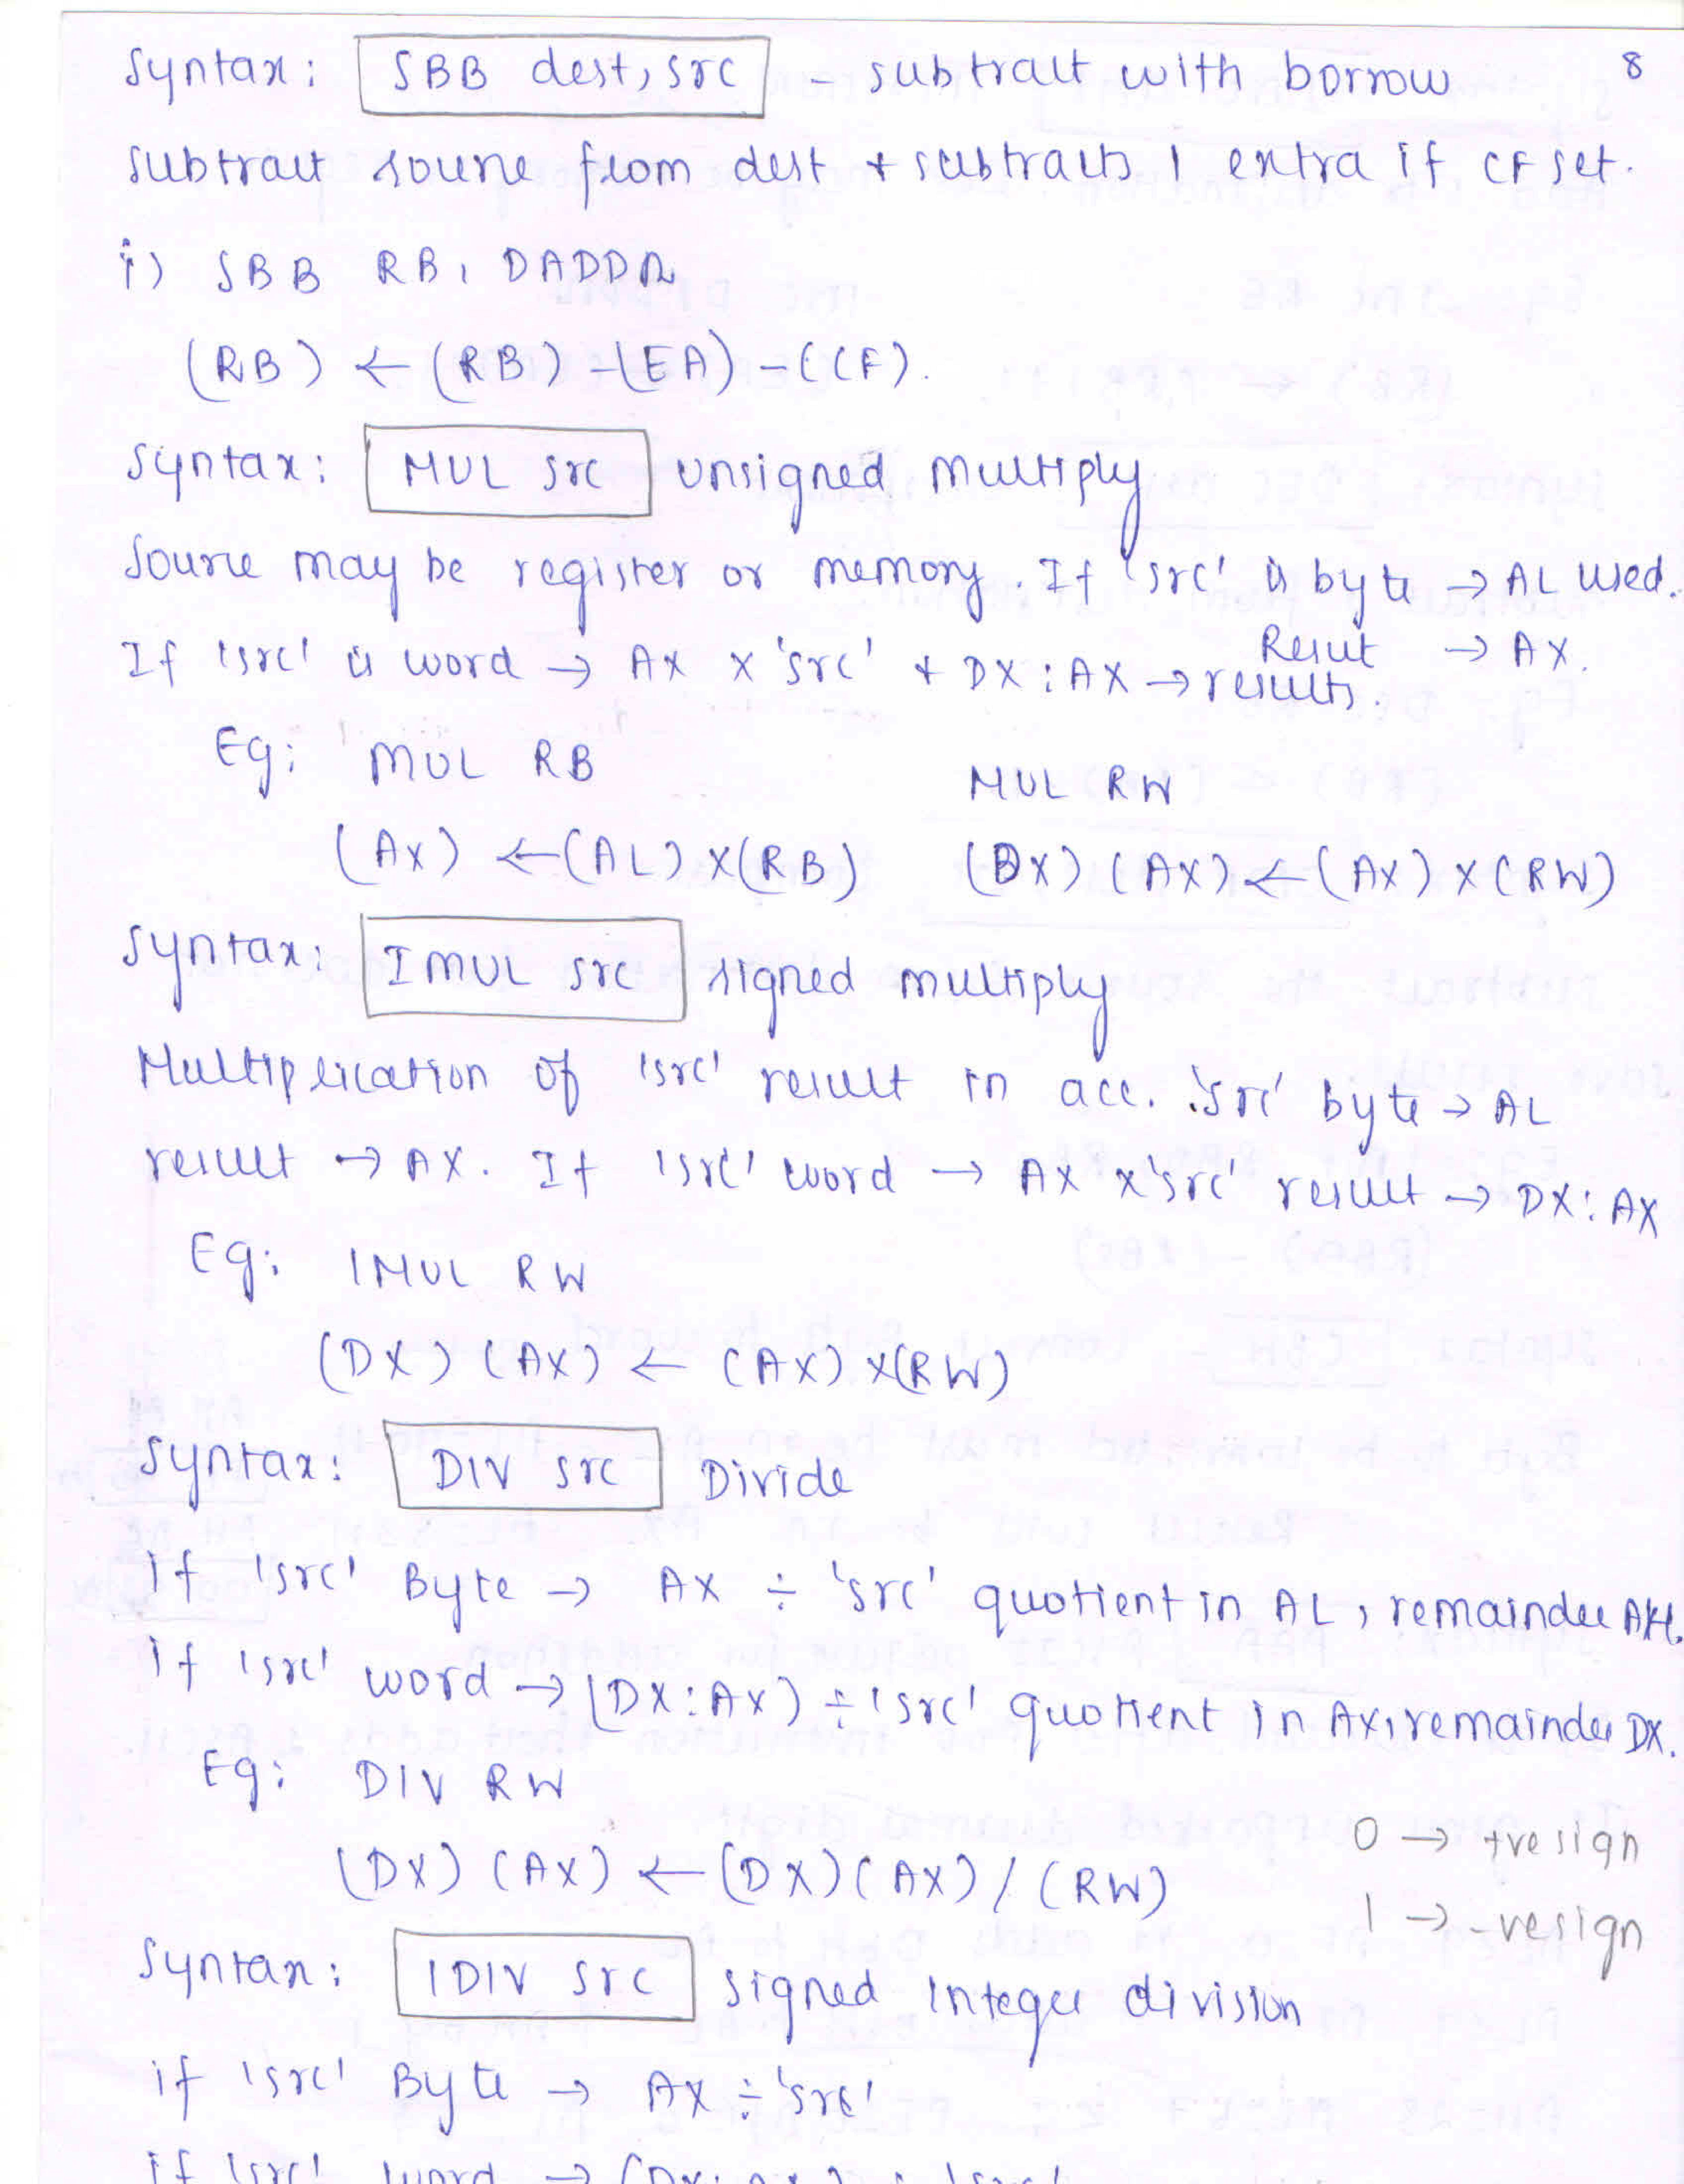 8
Syntax: SBB dest, src - subtract with borrow
subtract source from dest + subtracts 1 extra if CF set.
i) SBB RB, DADDR
(RB) ← (RB) - (EA) - (CF).
Syntax: MUL src unsigned multiply
Source may be register or memory. If 'src' is byte → AL used.
Result → AX.
If 'src' is word → AX x 'src' + DX:AX → results.
Eg: MUL RB MUL RW
(AX) ← (AL) x (RB) (DX) (AX) ← (AX) x (RW)
Syntax: IMUL src signed multiply
Multiplication of 'src' result in acc. 'src' byte → AL
result → AX. If 'src' word → AX x 'src' result → DX:AX
Eg: IMUL RW
(DX) (AX) ← (AX) x (RW)
Syntax: DIV src Divide
if 'src' Byte → AX ÷ 'src' quotient in AL, remainder AH.
if 'src' word → (DX:AX) ÷ 'src' quotient in AX, remainder DX.
Eg: DIV RW
0 → +ve sign
(DX) (AX) ← (DX) (AX) / (RW)
1 → -ve sign
Syntax: IDIV src signed integer division
if 'src' Byte → AX ÷ 'src'
if 'src' word → (DX:AX) ÷ 'src'